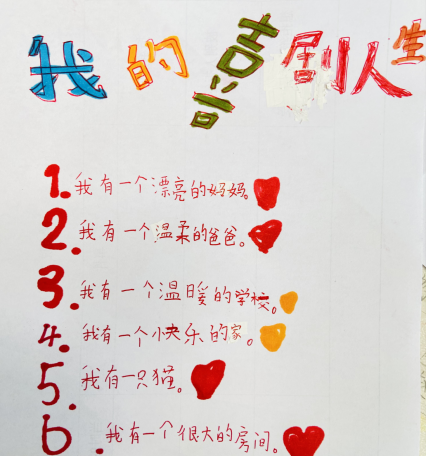 我的喜剧人生
1.我有一个漂亮的妈妈。
2.我有一个温柔的爸爸。
3.我有一个温暖的学校。
4.我有一个快乐的家。
5.我有一只猫。
6.我有一个很大的房间。